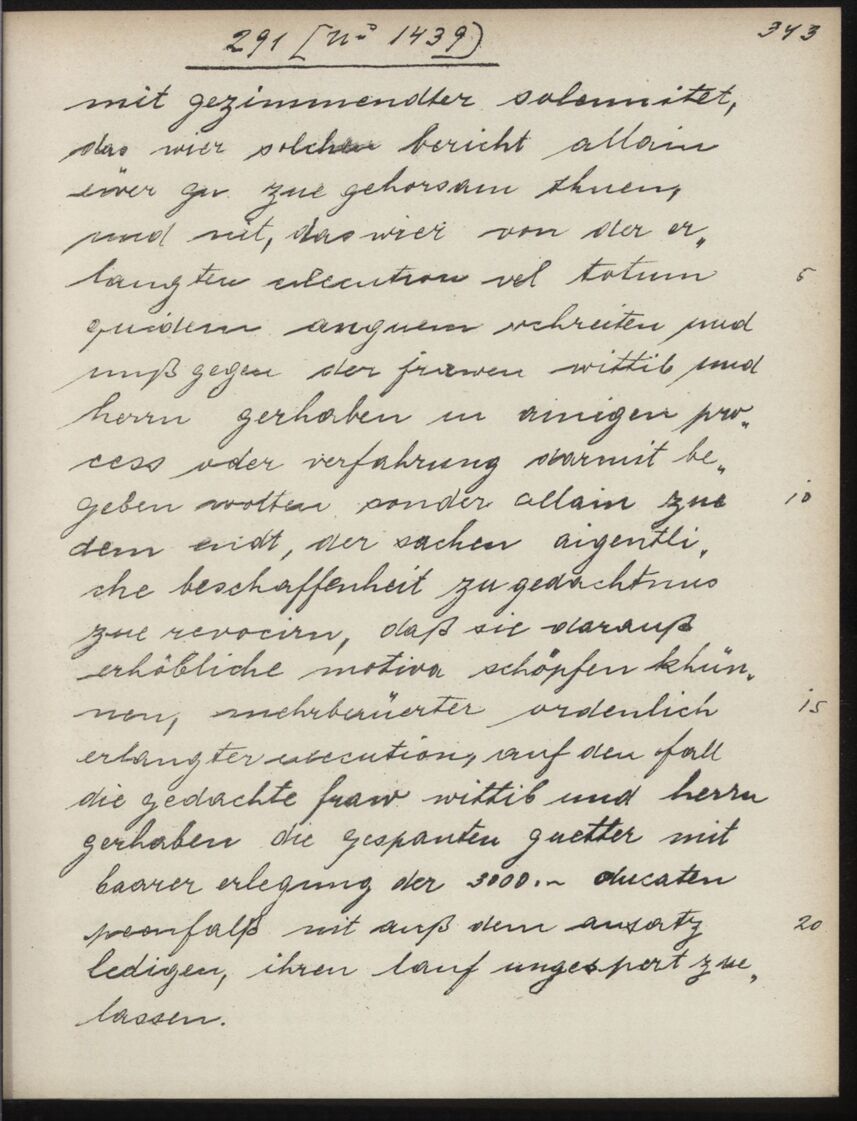 343
291 [No 1439)
mit gezimmendter solemnitet,
das wier solchen bericht allain
eüver gn. zue gehorsam thuen,
und nit, das wier von der er„
langten execution vel totum
quidem anguem schreiten und
unß gegen der frawen wittib und
herrn gerhaben in ainigen pro„
cess oder verfahrung darmit be„
geben wolten sonder allain zue
dem endt, der sachen aigentli„
che beschaffenheit zu gedachtnus
zue revocirn, daß sie darauß
erhöbliche motiva schöpfen khün„
nen, mehrberüerter ordenlich
erlangter execution, auf den fall
die gedachte fraw wittib und herrn
gerhaben die gespanten guetter mit
baarer erlegung der 3000.~ ducaten
peenfalß nit auß dem ansatz
ledigen, ihren lauf ungespert zue„
lassen.
5
10
15
20